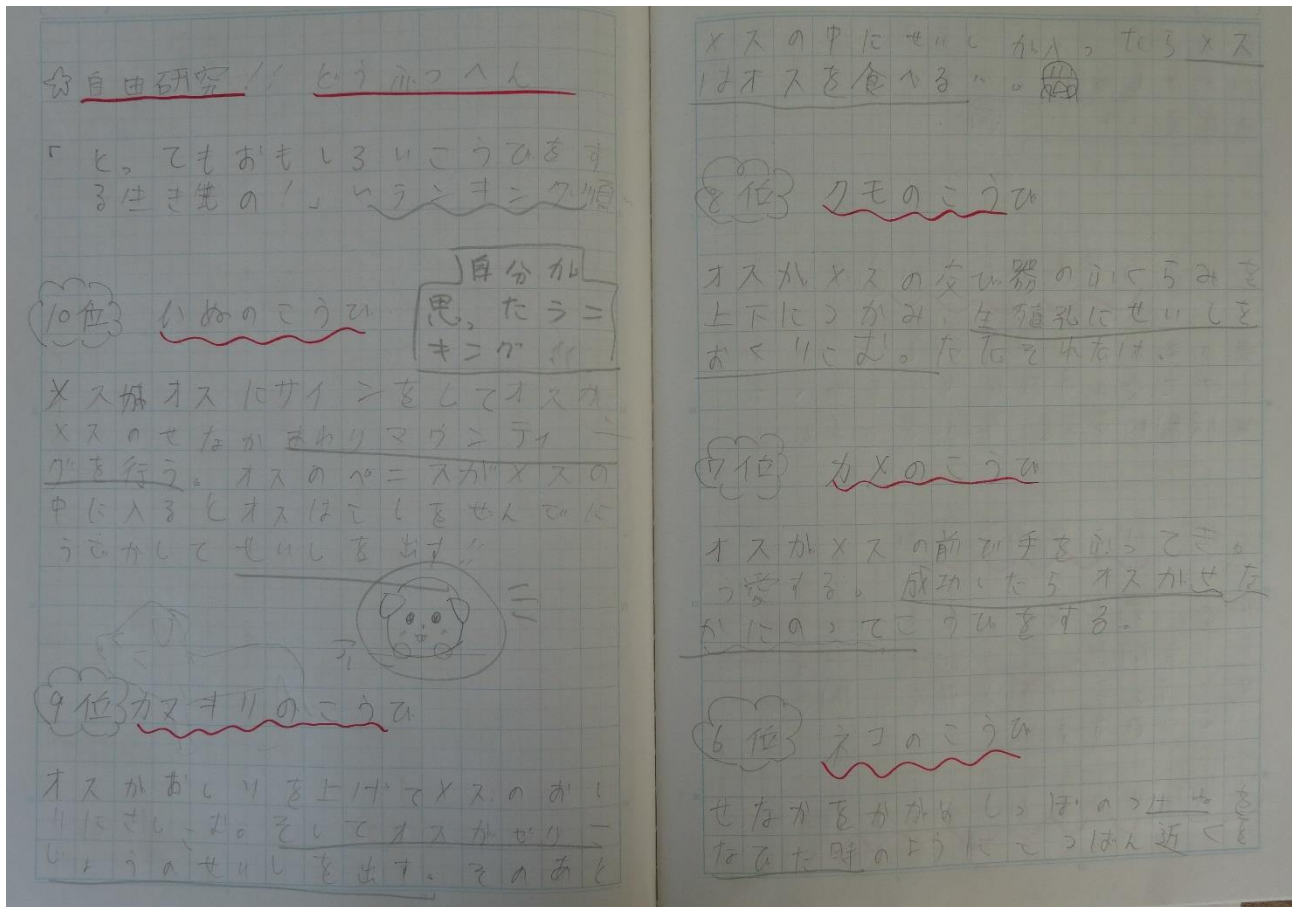 ☆自由研究!! どうぶつへん
「とってもおもしろいこうびをす
る生き物の!」〜ランキング順
自分が
思ったランキング
キング!!
10位 いぬのこうび
メスがオスにサインをしてオスが
メスのせなかまわりマウンティン
グを行う。オスのペニスがメスの
中に入るとオスはこしをぜんごに
うごかしてせいしを出す!!
9位 カマキリのこうび
オスがおしりを上げてメスのおし
りにさしこむ。そしてオスが
のせいしを出す。そのあと
メスの中にせいしが入ったらメス
はオスを食べる"。
8位 クモのこうび
オスがメスの交び器のふくらみを
上下につかみ、生殖孔にせいしを
おくりこむ。ただそれだけ、
7位 カメのこうび
オスがメスの前で手をふってき。
う愛する。成功したらオスがせな
かにのってこうびをする。
6位 ネコのこうび
せなかをかがめしっぽのつけねを
なでた時のように